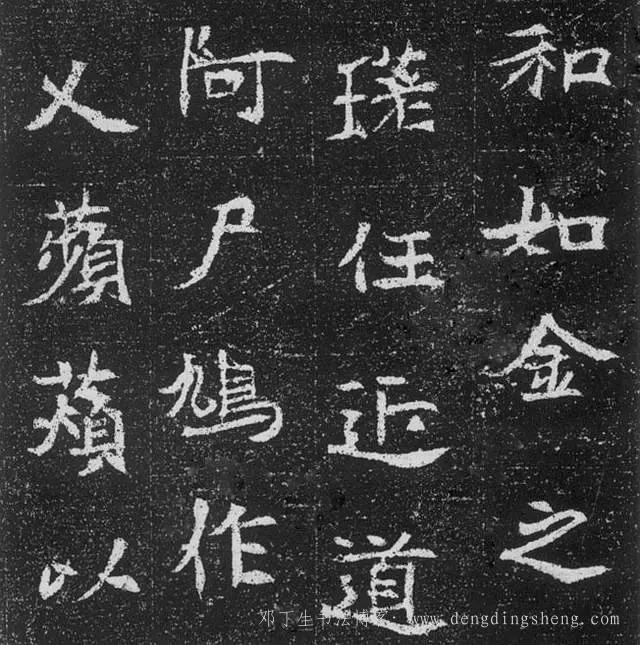 和如金之
任道
阿尸鳩作
乂蘋以
邓丁生书法博客: www.dengdingsheng.com